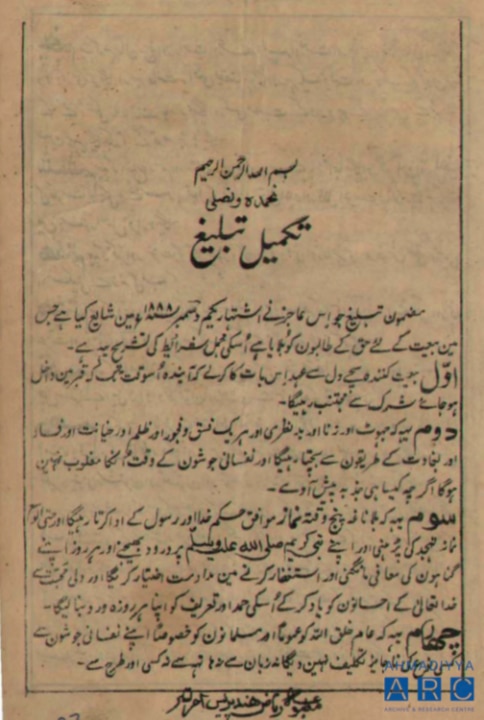 بسم اللہ الرحمن الرحیم
نحمدہ و نصلی
تکمیل تبلیغ
مضمون تبلیغ جو اس عاجز نے اشتہار یکم دسمبر ۱۸۸۸ء مین شایع کیا ہے جس
مین بیعت کے لئے حق کے طالبون کو بلایا ہے اُسکی مجمل شرائط کی تشریح یہ ہے۔
اوّل بیعت کنندہ سچے دل سے عہد اس بات کا کرے کہ آیندہ اُسوقت تک کہ قبر مین داخل
ہو جائے شرک سے مجتنب رہیگا۔
دوم یہہ کہ جھوٹ اور زنا اور بدنظری اور ہریک فسق و فجور اور ظلم اور خیانت اور فساد
اور بغاوت کے طریقون سے بچتا رہیگا اور نفسانی جوشون کے وقت اُنکا مغلوب نہین
ہوگا اگرچہ کیسا ہی جذبہ پیش آوے۔
سوم یہہ کہ بلاناغہ پنج وقتہ نماز موافق حکم خدا اور رسول کے ادا کرتا رہیگا اور حتی الوسع
نماز تہجد کی پڑھنے اور اپنے نبی کریم صلی اللہ علیہ وسلم پر درود بھیجنے اور ہر روز اپنے
گناہون کی معافی مانگنے اور استغفار کرنے مین مداومت اختیار کریگا اور دلی محبت سے
خدا تعالیٰ کے احسانون کو یاد کر کے اُسکی حمد اور تعریف کو اپنا ہر روزہ ورد بنا لیگا۔
چہارم یہہ کہ عام خلق اللہ کو عموماً اور مسلمانون کو خصوصاً اپنے نفسانی جوشون سے
کسی نوع کی ناجایز تکلیف نہین دیگا نہ زبان سے نہ ہاتھ سے نہ کسی اور طرح سے۔
مطبوعہ ریاض ہند پریس امرتسر
AHMADIYYA
ARC
ARCHIVE & RESEARCH CENTRE